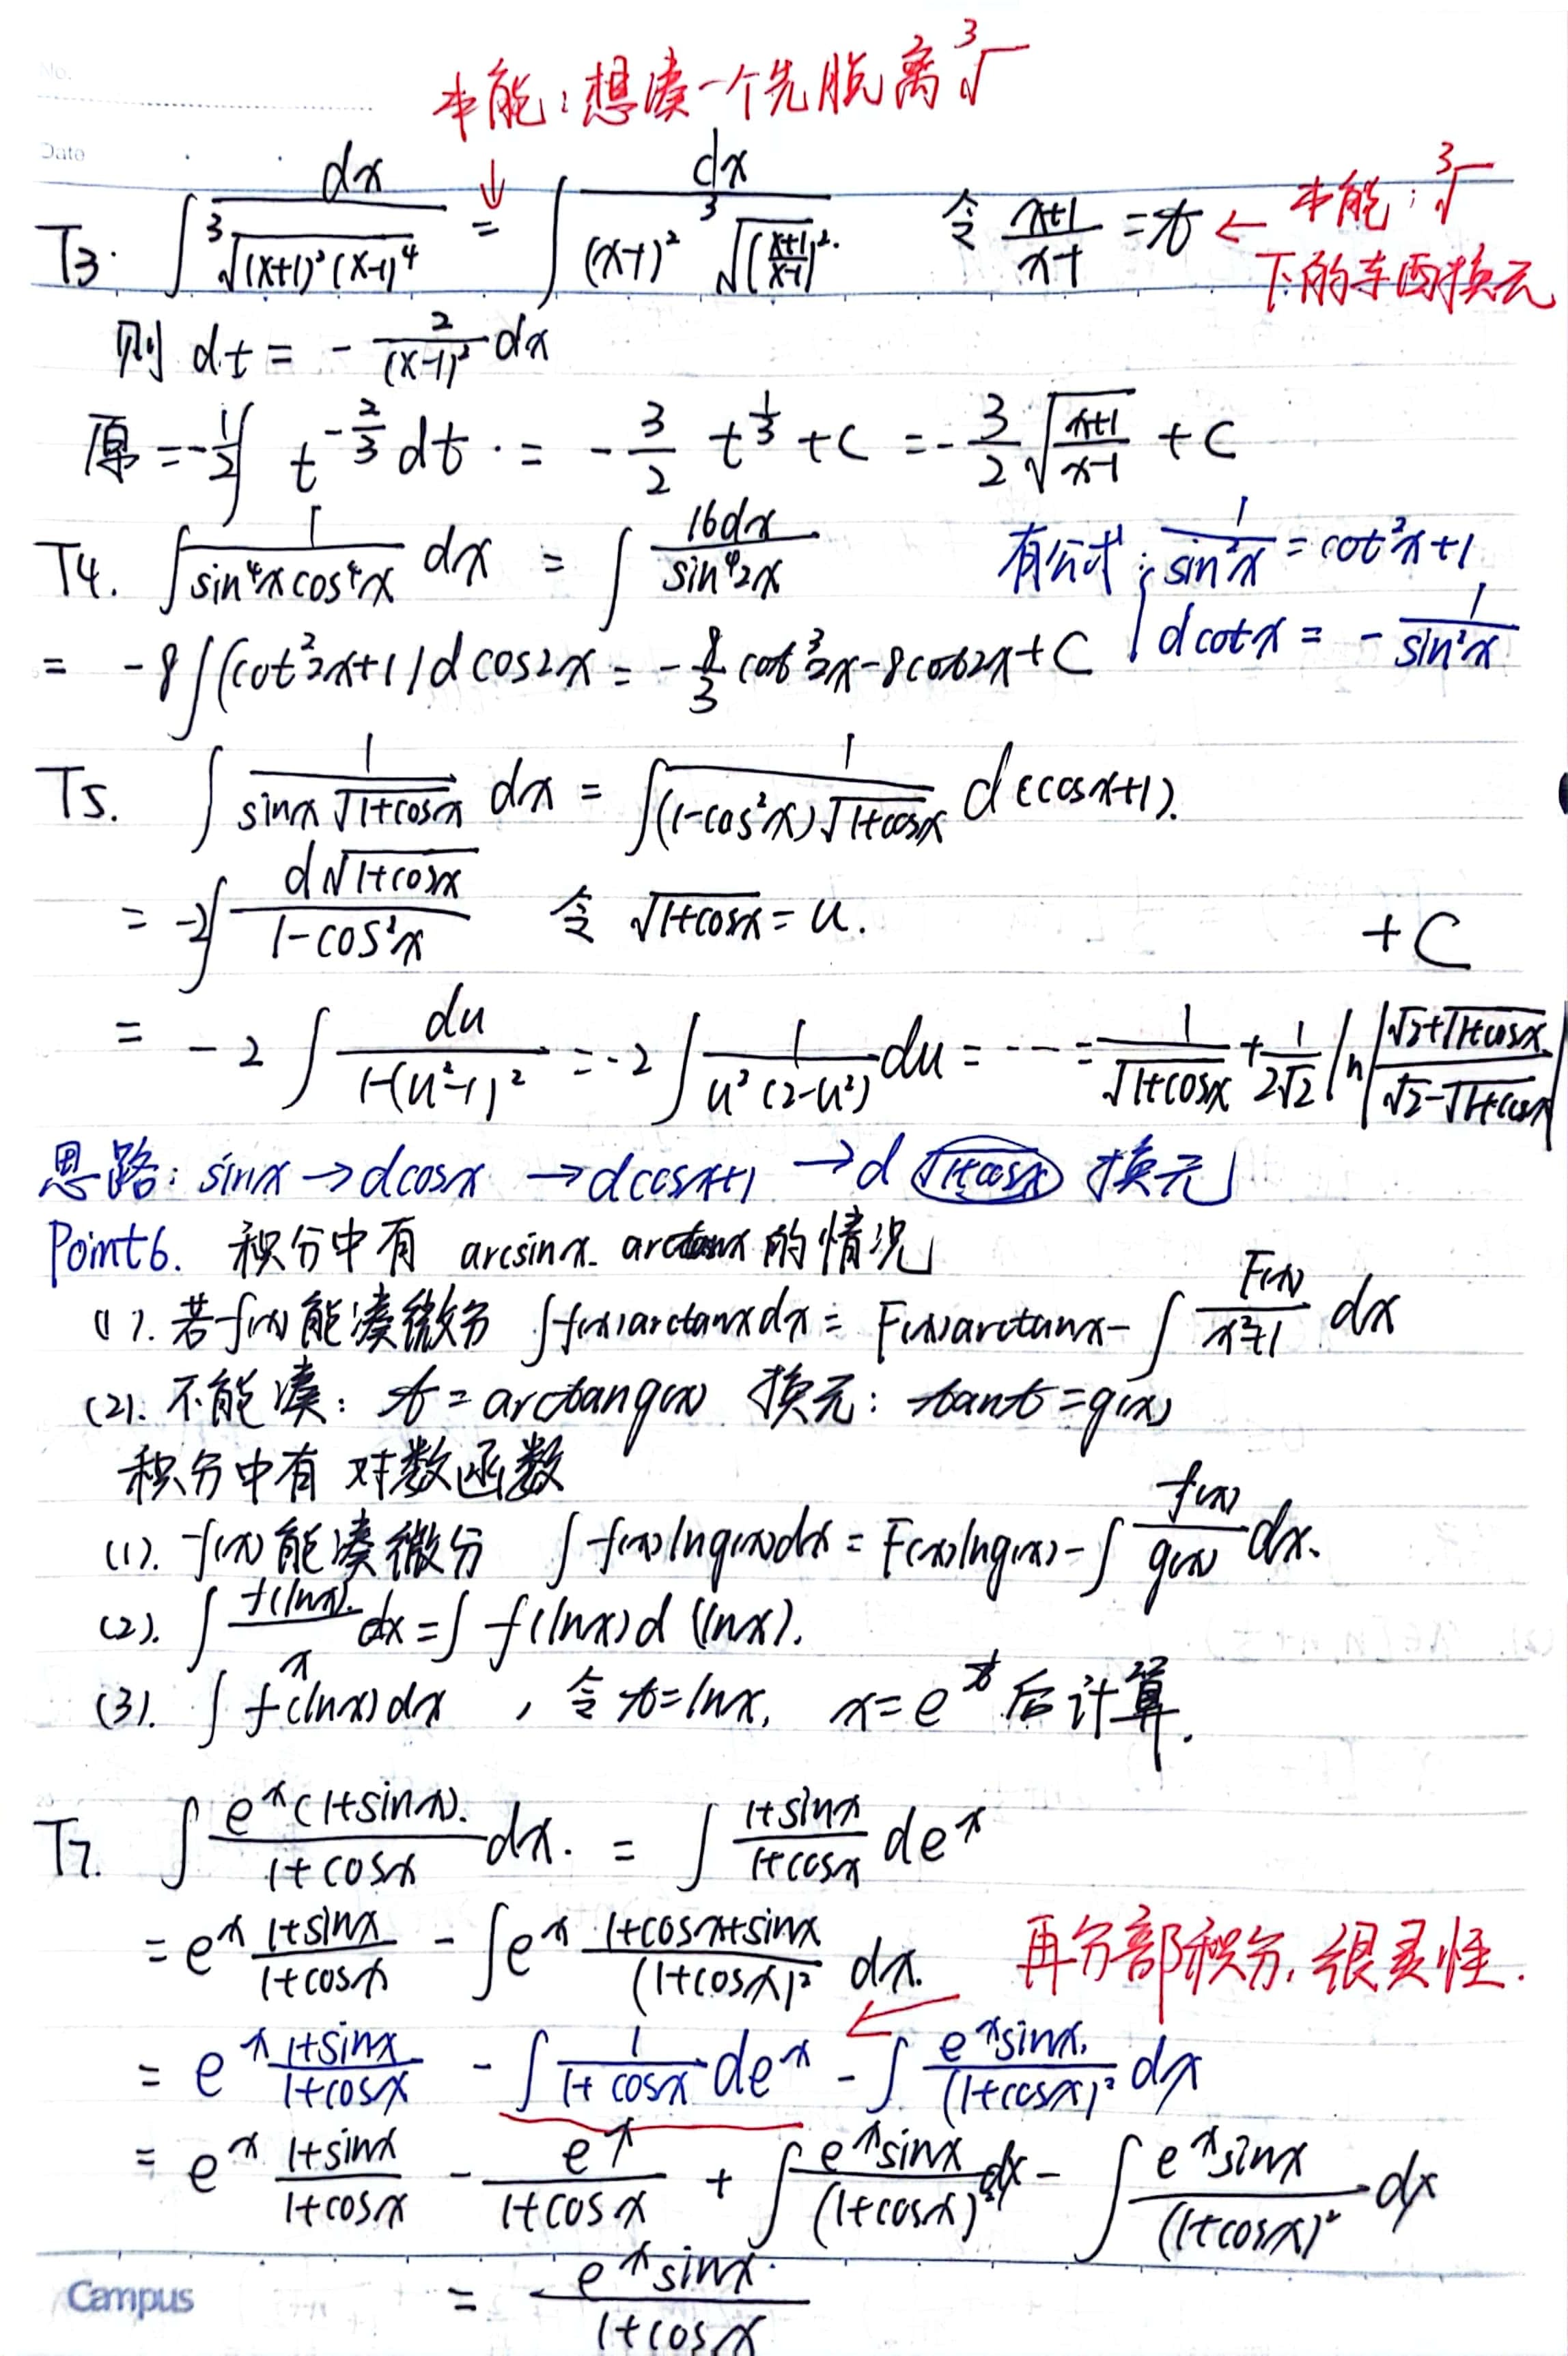 No.
Date
本能：想凑一个先脱离 ∛
T3. ∫ dx / ∛((x+1)²(x-1)⁴) = ∫ dx / ((x-1)² ∛((x+1)/(x-1))²) 令 (x+1)/(x-1) = t ← 本能：∛
下的东西换元
则 dt = - 2/(x-1)² dx
原 = -1/2 ∫ t^(-2/3) dt = - 3/2 t^(1/3) + C = - 3/2 √((x+1)/(x-1)) + C
T4. ∫ 1/(sin⁴x cos⁴x) dx = ∫ 16dx/(sin⁴2x) 有公式：1/(sin²x) = cot²x+1
= -8∫(cot²2x+1)dcos2x = - 8/3 cot³2x - 8cot2x + C dcotx = - 1/(sin²x)
T5. ∫ 1/(sinx √(1+cosx)) dx = ∫ 1/((1-cos²x)√(1+cosx)) d(cosx+1).
= -2∫ d√(1+cosx) / (1-cos²x) 令 √(1+cosx) = u. + C
= -2 ∫ du/(1-(u²-1)²) = -2 ∫ 1/(u²(2-u²)) du = --- = 1/√(1+cosx) + 1/(2√2) ln|(√2+√(1+cosx))/(√2-√(1+cosx))|
思路：sinx → dcosx → dcosx+1 → d √(1+cosx) 换元
Point6. 积分中有 arcsinx. arctanx 的情况
(1). 若f(x)能凑微分 ∫f(x)arctanxdx = F(x)arctanx - ∫ F(x)/(x²+1) dx
(2). 不能凑：t = arctang(x) 换元：tant = g(x)
积分中有 对数函数
(1). f(x)能凑微分 ∫f(x)lng(x)dx = F(x)lng(x) - ∫ f(x)/g(x) dx.
(2). ∫ f(lnx)/x dx = ∫ f(lnx)d(lnx).
(3). ∫ f(lnx)dx ，令t=lnx, x=e^t 后计算.
T7. ∫ e^x(1+sinx)/(1+cosx) dx. = ∫ (1+sinx)/(1+cosx) de^x
= e^x (1+sinx)/(1+cosx) - ∫e^x (1+cosx+sinx)/(1+cosx)² dx. 再分部积分, 很灵性.
= e^x (1+sinx)/(1+cosx) - ∫ 1/(1+cosx) de^x - ∫ e^x sinx/(1+cosx)² dx
= e^x (1+sinx)/(1+cosx) - e^x/(1+cosx) + ∫ e^x sinx/(1+cosx)² dx - ∫ e^x sinx/(1+cosx)² dx
= e^x sinx/(1+cosx)
Campus